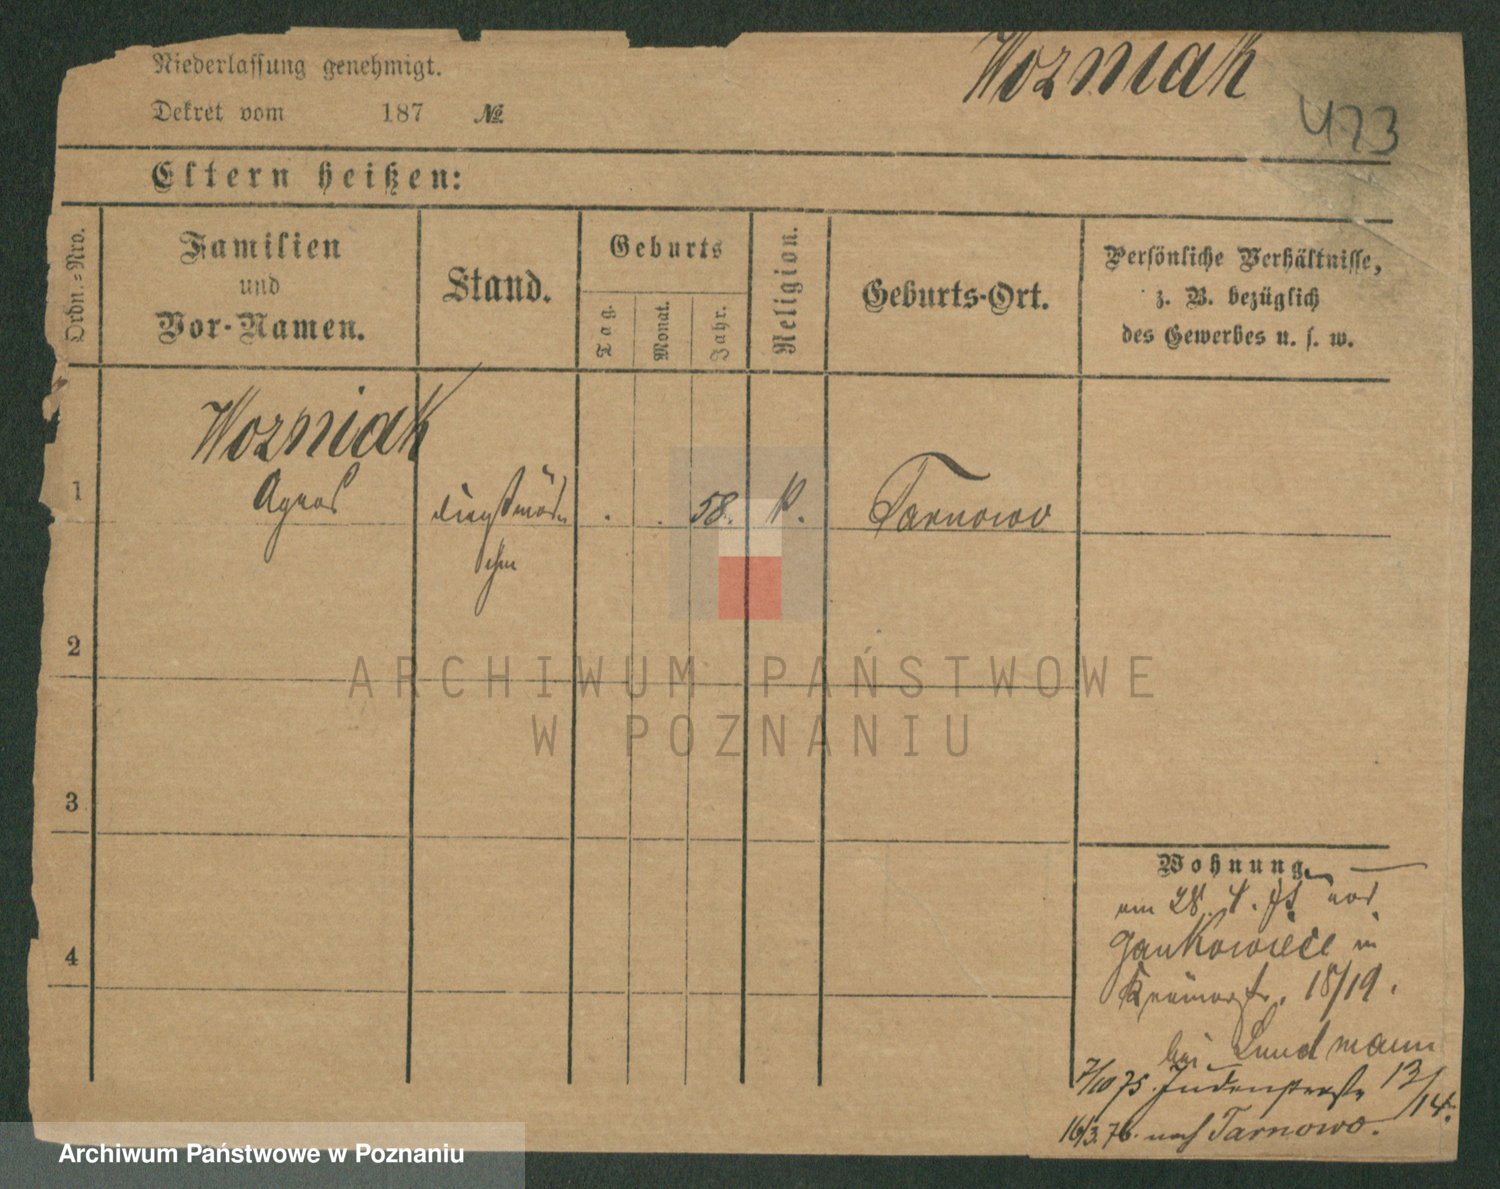 Niederlassung genehmigt.
Wozniak
423
Dekret vom 187 №
Eltern heißen:
Ordn.=Nro.
Familien
und
Vor-Namen.
Stand.
Geburts
Tag.
Monat.
Jahr.
Religion.
Geburts-Ort.
Persönliche Verhältnisse,
z. B. bezüglich
des Gewerbes u. s. w.
Wozniak
1 Agnes Dienstmäd- . . 58. K. Tarnowo
chen
2
3
4
Wohnung.
am 28. 4. 75 von
Jankowice in
Krämerstr. 18/19.
bei Landmann
7/10 75. Judenstraße 13/14.
16/3. 76. nach Tarnowo.
ARCHIWUM PAŃSTWOWE
W POZNANIU
Archiwum Państwowe w Poznaniu